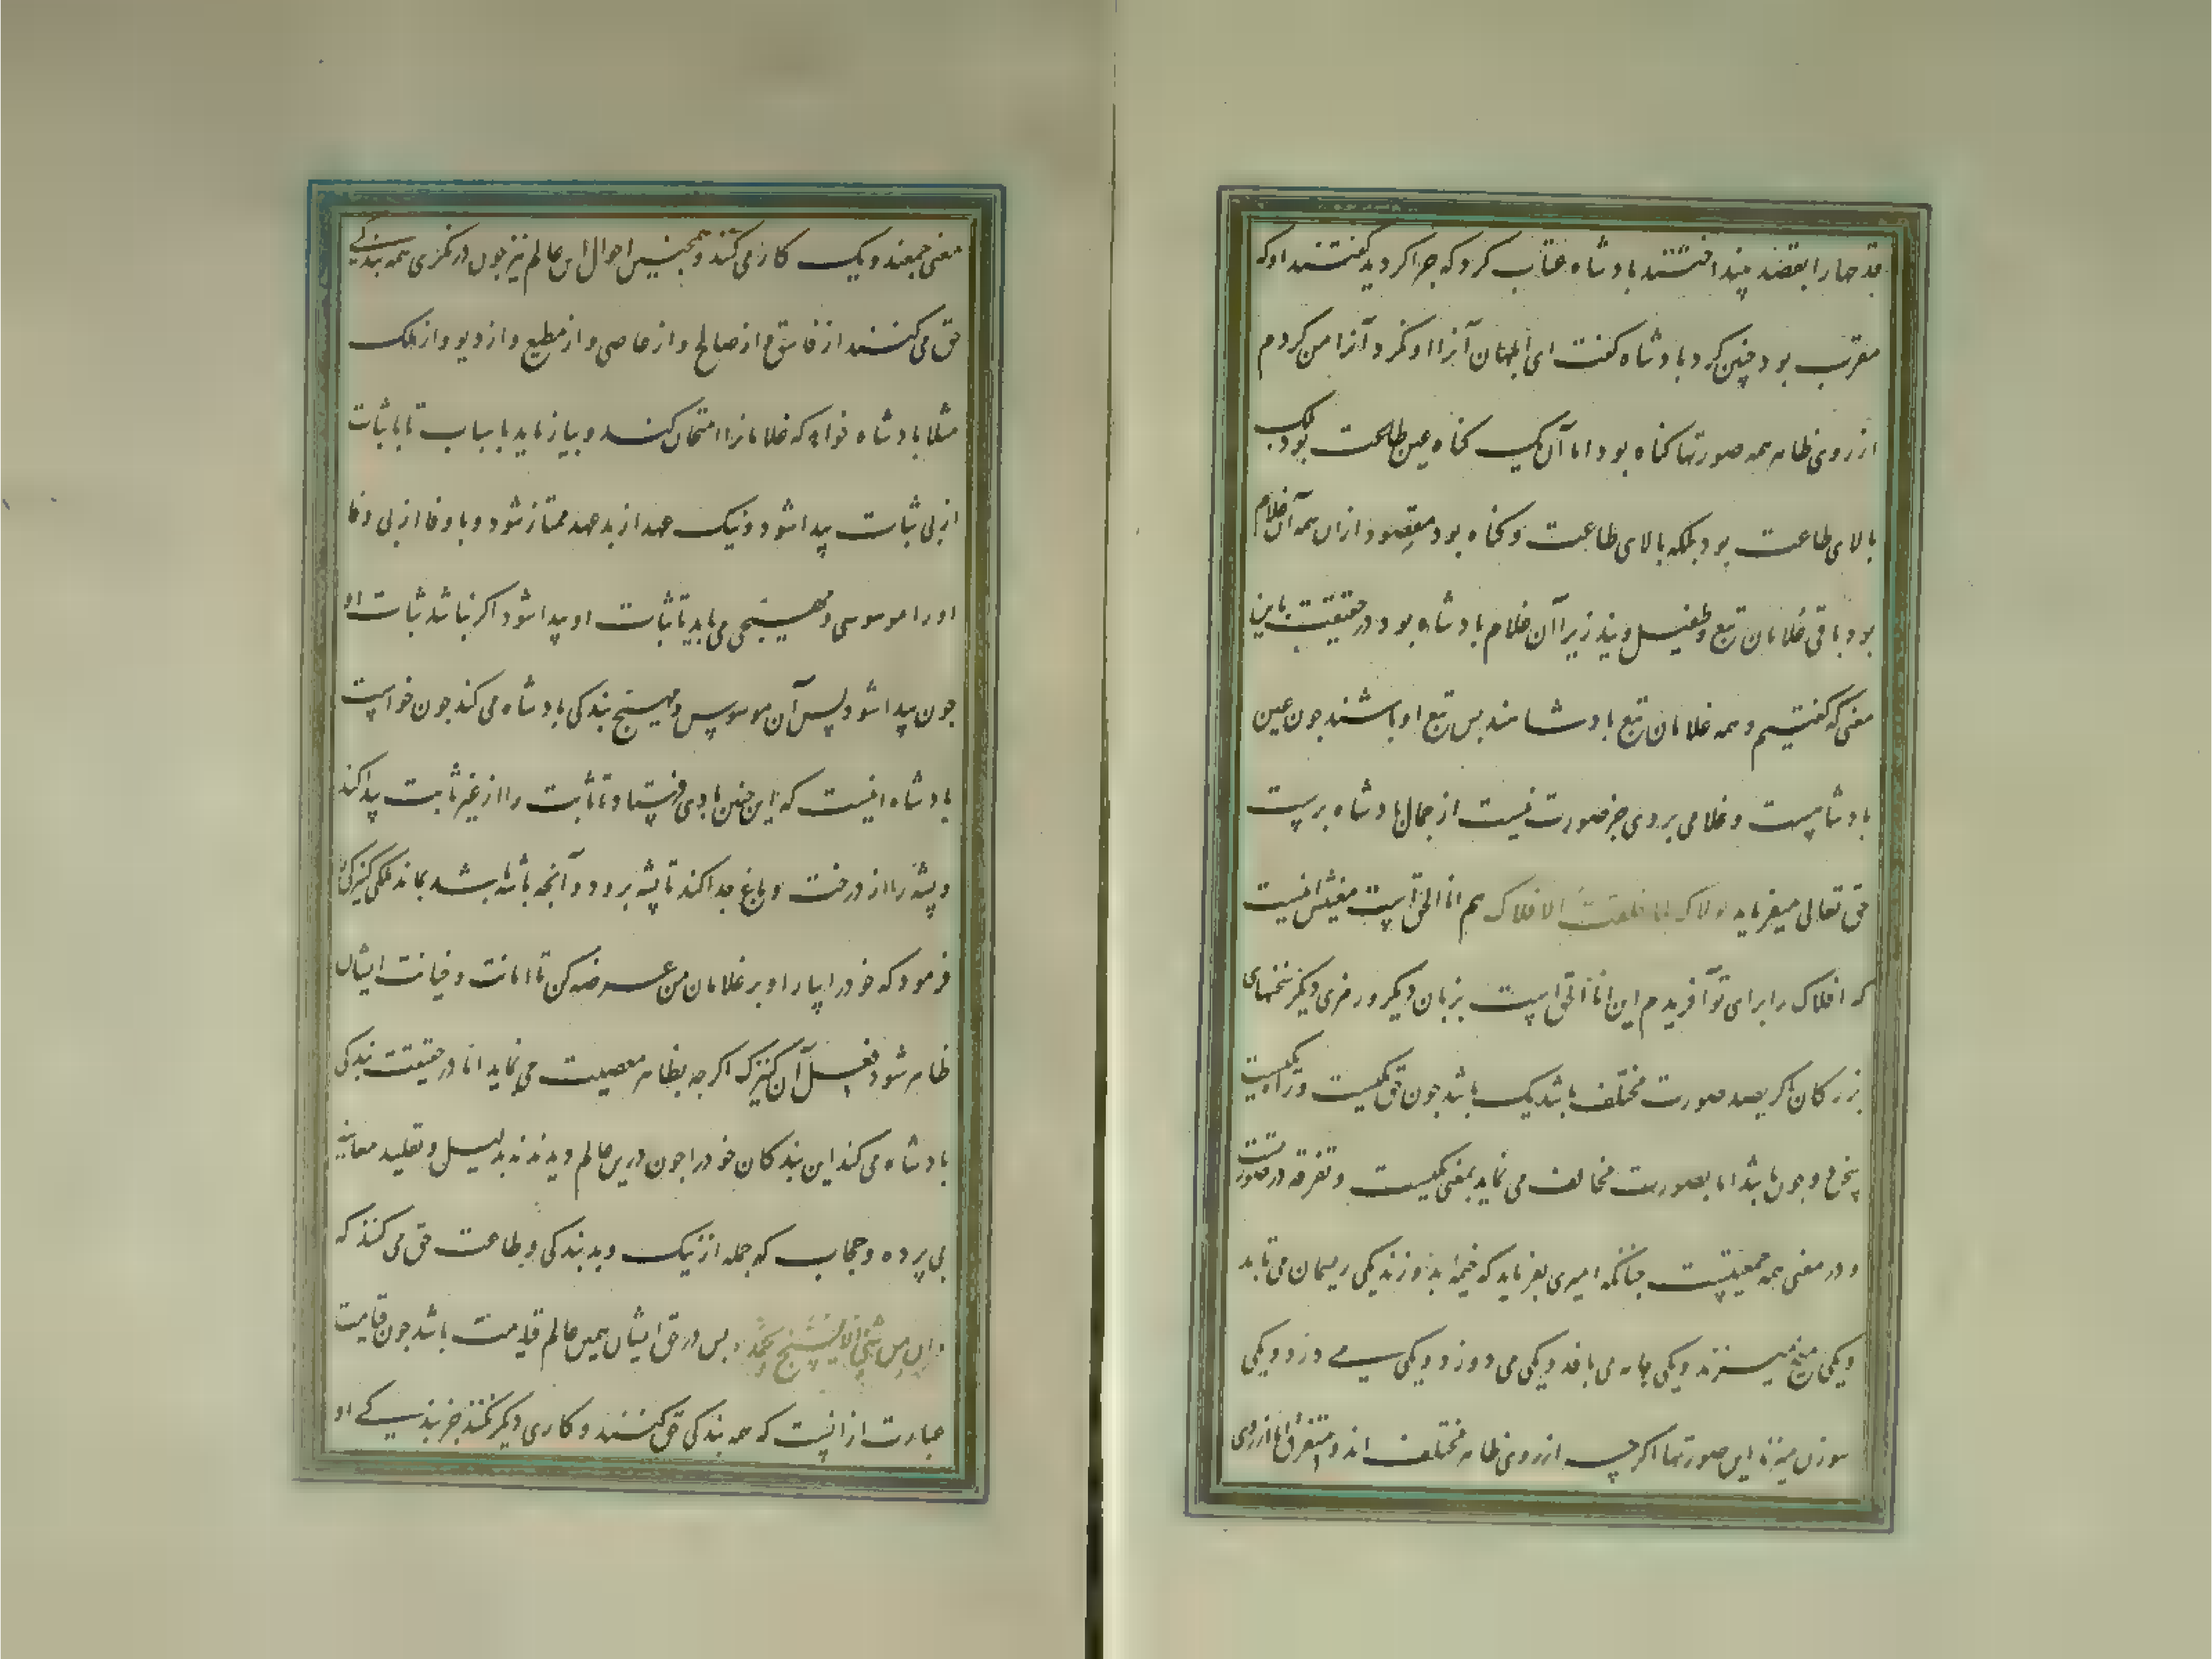 قدحها را بقصد بینداختند بادشاه عتاب کرد که جرا کردید کفتند او که
مقرب بود چنین کرد بادشاه کفت ای ابلهان آنرا او نکرد آنرا من کردم
از روی ظاهر همه صورتها کناه بود اما آن یک کناه عین طاعت بود بلک
بالای طاعت بود بلکه بالای طاعت و کناه بود مقصود ازان همه آن غلام
بود باقی غلامان تبع و طفیل ویند زیرا آن غلام بادشاه بود در حقیقت باین
معنی که کفتیم و همه غلامان تبع بادشاهند بس تبع او باشند جون عین
بادشاهست و غلامی بر وی جز صورت نیست از جمال بادشاه برست
حق تعالی میفرماید لولاک لما خلقت الافلاک هم انا الحق است معنیش اینست
که افلاک را برای تو آفریدم این انا الحق است بزبان دیکر و رمزی دیکر سخنهای
بزرکان اکر بصد صورت مختلف باشد یک باشد جون حق یکیست و راه یکیست
سخن دو جون باشد اما بصورت مخالف می نماید بمعنی یکیست و تفرقه در صورتست
و در معنی همه جمعیتست جنانکه امیری بفرماید که خیمه بدوزند یکی ریسمان می تابد
و یکی میخ میزند و یکی جامه می بافد و یکی می دوزد و یکی می درد و یکی
سوزن میزند این صورتها اکرچه از روی ظاهر مختلف اند و متفرق اما از روی
معنی جمعند و یک کار می کنند و همجنین احوال این عالم نیز جون درنکری همه بندکی
حق می کنند از فاسق و از صالح و از عاصی و از مطیع و از دیو و از ملک
مثلا بادشاه خواهد که غلامانرا امتحان کند و بیازماید باسباب تا باثبات
از بی ثبات پیدا شود و نیک عهد از بد عهد ممتاز شود و باوفا از بی وفا
او را موسوسی و مهیجی می باید تا ثبات او پیدا شود اکر نباشد ثبات او
جون پیدا شود پس آن موسوس و مهیج بندکی بادشاه می کند جون خواست
بادشاه اینست که این جنین بادی فرستاد تا ثابت را از غیر ثابت پیدا کند
و پشه را از درخت و باغ جدا کند تا پشه برود و آنچه باشه باشد بماند ملکی کنیزکی را
فرمود که خود را بیارا و بر غلامان من عرضه کن تا امانت و خیانت ایشان
ظاهر شود فعل آن کنیزک اکر جه بظاهر معصیت می نماید اما در حقیقت بندکی
بادشاه می کند این بندکان خود را جون درین عالم دیدند نه بدلیل و تقلید معاینه
بی پرده و حجاب که جمله از نیک و بد بندکی و طاعت حق می کنند که
و ان من شیء الا یسبح بحمده بس در حق ایشان همین عالم قیامت باشد جون قیامت
عبارت ازانیست که همه بندکی حق کنند و کاری دیکر نکنند جز بندکی او